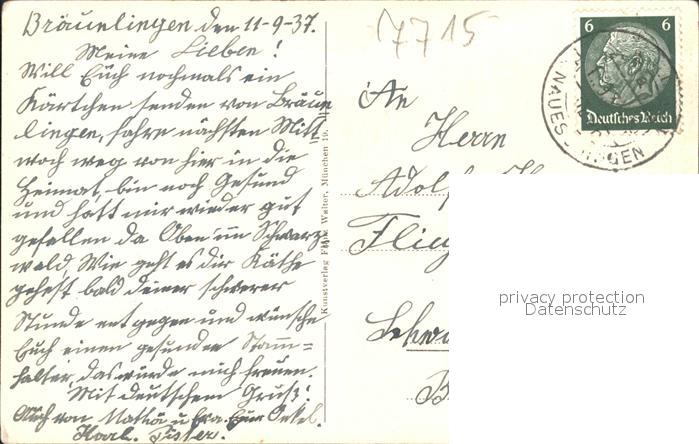 Bräunlingen den 11-9-37.
Meine Lieben!
Will Euch nochmals ein
Kärtchen senden von Bräun
lingen, fahre nächsten Mitt
woch weg von hier in die
Heimat, bin noch Gesund
und hatt mir wieder gut
gefallen da Oben im Schwarz
wald, Wie geht es dir Käthe
gehst bald deiner schwerer
Stunde entgegen und wünsche
Euch einen gesunden Stamm=
halter, das würde mich freuen.
Mit deutschem Gruß!
Auch von u Eva. Euer Onkel.
Karl.
Kunstverlag Franz Walter, München 19.
7715
6 6
Deutsches Reich
NAUES - INGEN
An
Herrn
Adolf
Flie
Schw
B
privacy protection
Datenschutz